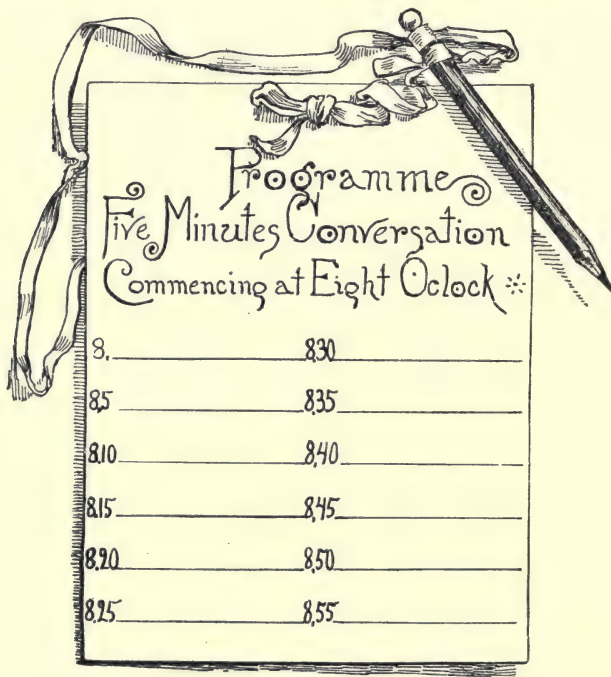 Programme
Five Minutes Conversation
Commencing at Eight Oclock
8. 8.30
8.5 8.35
8.10 8.40
8.15 8.45
8.20 8.50
8.25 8.55